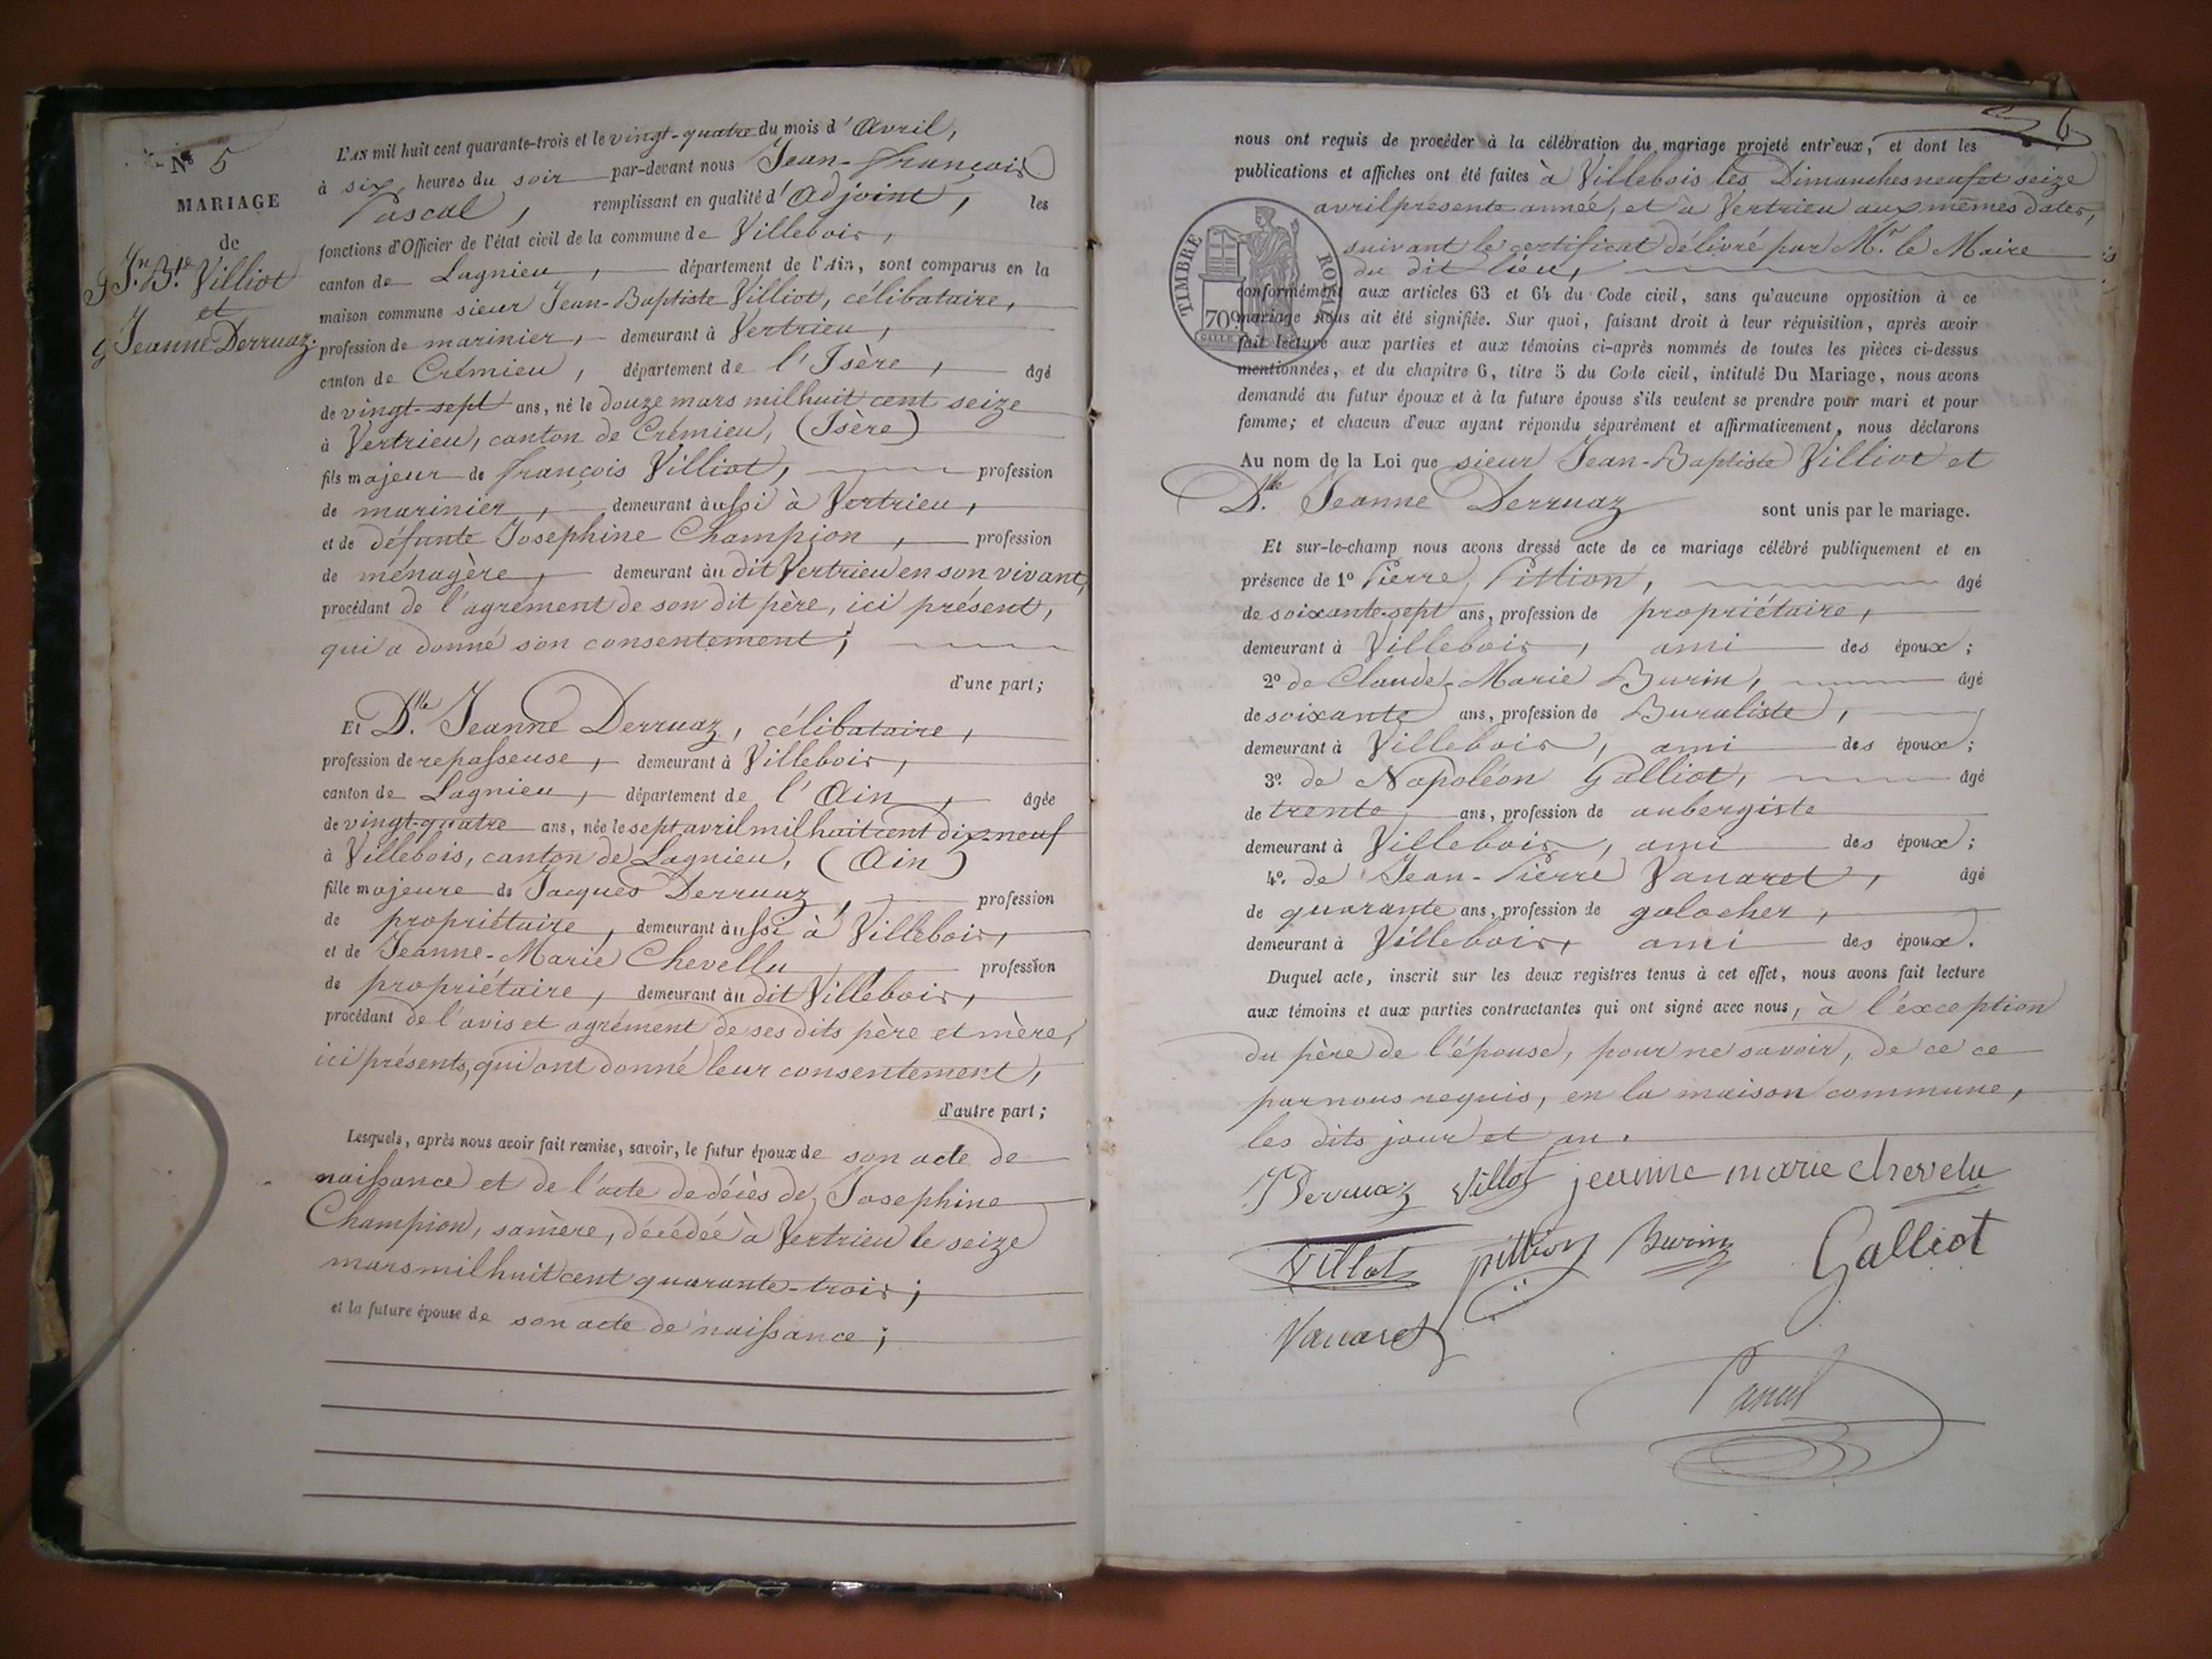 N° 5
MARIAGE
de
Jn. Bte. Villiot
et
Jeanne Derruaz.
L'AN mil huit cent quarante-trois et le vingt-quatre du mois d'Avril,
à six heures du soir par-devant nous Jean-François
Pascal, remplissant en qualité d'Adjoint, les
fonctions d'Officier de l'état civil de la commune de Villebois,
canton de Lagnieu, département de l'Ain, sont comparus en la
maison commune sieur Jean-Baptiste Villiot, célibataire,
profession de marinier, demeurant à Vertrieu,
canton de Crémieu, département de l'Isère, âgé
de vingt-sept ans, né le douze mars mil huit cent seize
à Vertrieu, canton de Crémieu, (Isère)
fils majeur de François Villiot, profession
de marinier, demeurant aussi à Vertrieu,
et de défunte Josephine Champion, profession
de ménagère, demeurant au dit Vertrieu en son vivant,
procédant de l'agrément de son dit père, ici présent,
qui a donné son consentement;
d'une part;
Et Dlle. Jeanne Derruaz, célibataire,
profession de repasseuse, demeurant à Villebois,
canton de Lagnieu, département de l'Ain, âgée
de vingt-quatre ans, née le sept avril mil huit cent dix-neuf
à Villebois, canton de Lagnieu, (Ain)
fille majeure de Jacques Derruaz, profession
de propriétaire, demeurant aussi à Villebois,
et de Jeanne-Marie Chevellu, profession
de propriétaire, demeurant au dit Villebois,
procédant de l'avis et agrément de ses dits père et mère,
ici présents, qui ont donné leur consentement,
d'autre part;
Lesquels, après nous avoir fait remise, savoir, le futur époux de son acte de
naissance et de l'acte de décès de Josephine
Champion, sa mère, décédée à Vertrieu le seize
mars mil huit cent quarante-trois;
et la future épouse de son acte de naissance;
6
nous ont requis de procéder à la célébration du mariage projeté entr'eux, et dont les
publications et affiches ont été faites à Villebois les Dimanches neuf et seize
avril présente année, et à Vertrieu aux mêmes dates,
suivant le certificat délivré par Mr. le Maire
du dit lieu,
TIMBRE ROYAL
70c
conformément aux articles 63 et 64 du Code civil, sans qu'aucune opposition à ce
mariage nous ait été signifiée. Sur quoi, faisant droit à leur réquisition, après avoir
fait lecture aux parties et aux témoins ci-après nommés de toutes les pièces ci-dessus
mentionnées, et du chapitre 6, titre 5 du Code civil, intitulé Du Mariage, nous avons
demandé au futur époux et à la future épouse s'ils veulent se prendre pour mari et pour
femme; et chacun d'eux ayant répondu séparément et affirmativement, nous déclarons
Au nom de la Loi que sieur Jean-Baptiste Villiot et
Dlle. Jeanne Derruaz sont unis par le mariage.
Et sur-le-champ nous avons dressé acte de ce mariage célébré publiquement et en
présence de 1° Pierre Pittion, âgé
de soixante-sept ans, profession de propriétaire,
demeurant à Villebois, ami des époux;
2° de Claude-Marie Burin, âgé
de soixante ans, profession de Buraliste,
demeurant à Villebois, ami des époux;
3°. de Napoléon Galliot, âgé
de trente ans, profession de aubergiste
demeurant à Villebois, ami des époux;
4°. de Jean-Pierre Vanaret, âgé
de quarante ans, profession de galocher,
demeurant à Villebois, ami des époux.
Duquel acte, inscrit sur les deux registres tenus à cet effet, nous avons fait lecture
aux témoins et aux parties contractantes qui ont signé avec nous, à l'exception
du père de l'épouse, pour ne savoir, de ce ce
par nous requis, en la maison commune,
les dits jour et an.
J Derruaz Villot jeanne marie chevelu
Villot pittion Burin Galliot
Vanaret
Pascal